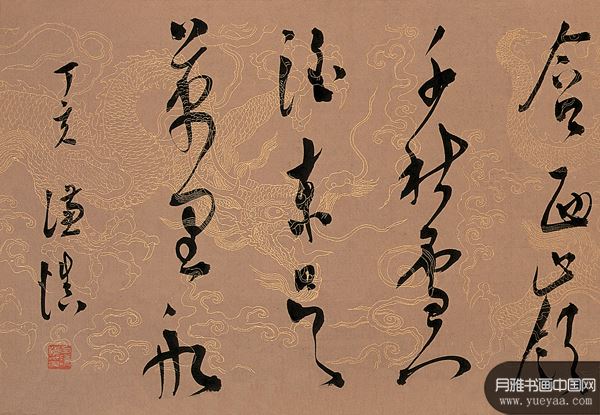 含西嶺
千秋雪門
泊東吳
萬里船
丁亥 謙慎
月雅书画中国网
www.yueyaa.com